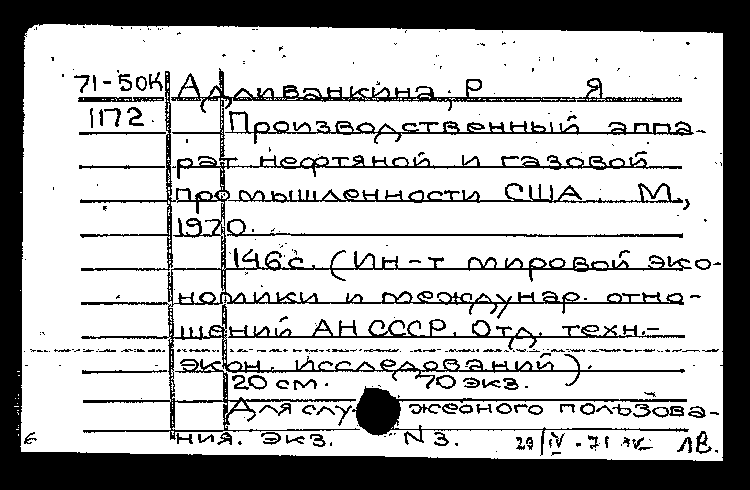 71-50К Адливанкина, Р Я
1П2. Производственный аппа-
рат нефтяной и газовой
промышленности США. М.,
1970.
146 с. (Ин-т мировой эко-
номики и междунар. отно-
шений АН СССР. Отд. техн.-
экон. исследований).
20 см. 70 экз.
Для служебного пользова-
ния. экз. N 3.
6 29/IV-71 ЛВ.